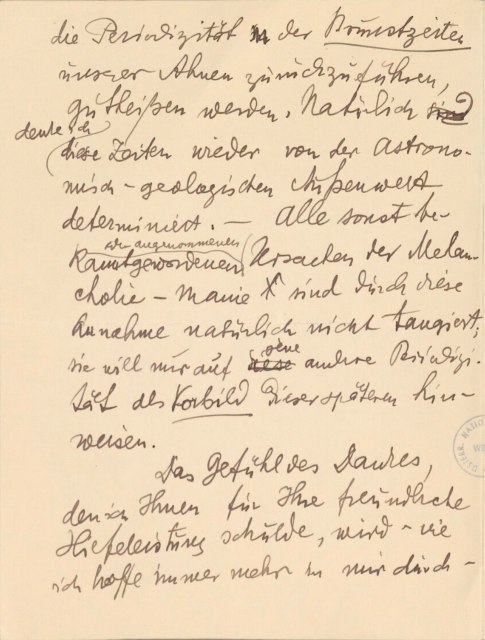 die Periodizität in der Brunstzeiten
unserer Ahnen zurückzuführen,
gutheißen werden. Natürlich sind
denke ich
diese Zeiten wieder von der astrono-
misch-geologischen Außenwelt
determiniert. — Alle sonst be-
wie angenommenen
kanntgewordenen Ursachen der Melan-
cholie-Manie X sind durch diese
Annahme natürlich nicht tangiert;
jene
sie will nur auf diese andere Periodizi-
tät als Vorbild dieser späteren hin-
weisen.
Das Gefühl des Dankes,
den ich Ihnen für Ihre freundliche
Hilfeleistung schulde, wird – wie
ich hoffe immer mehr in mir durch-